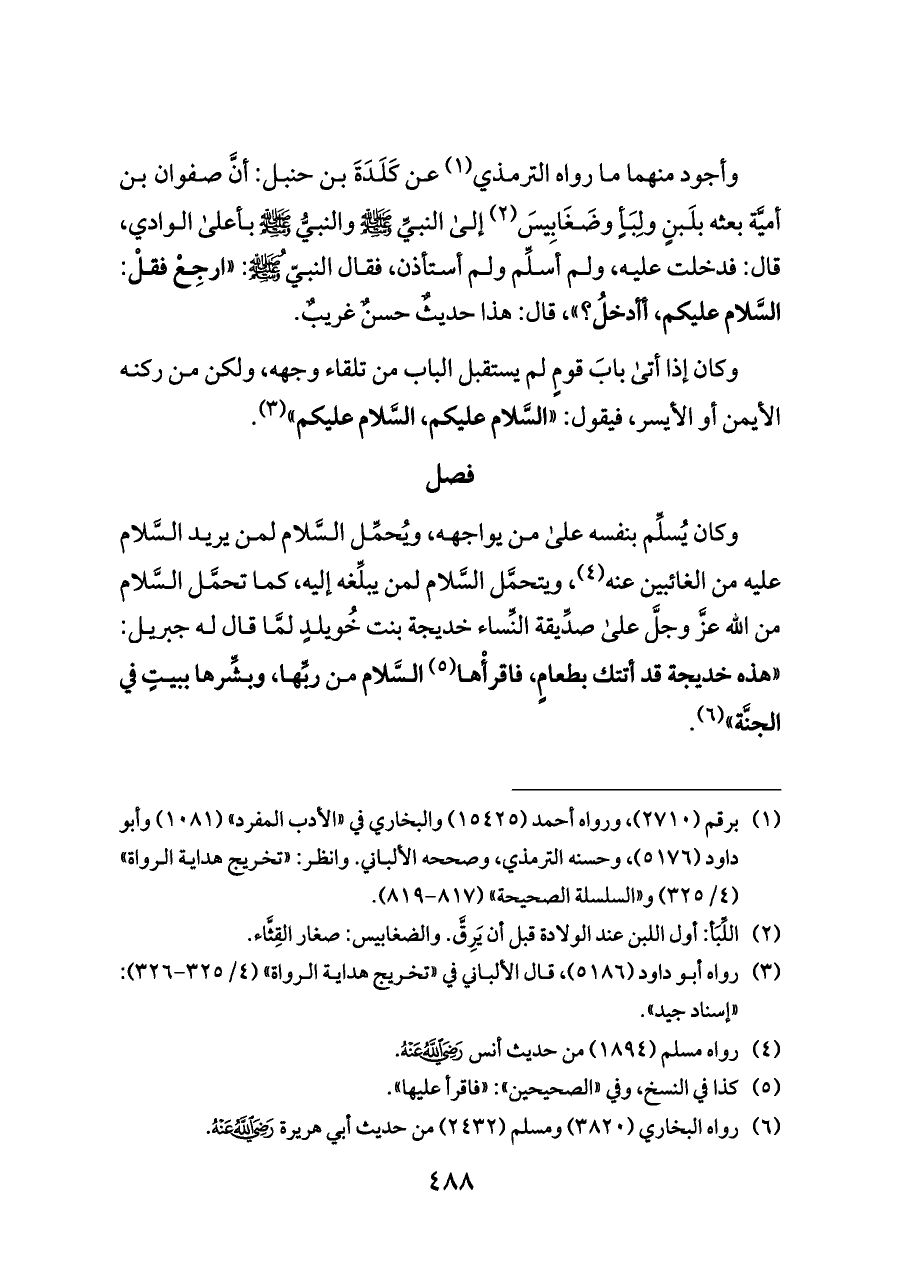 وأجود منهما ما رواه الترمذي(١) عن كَلَدَةَ بن حنبل: أنَّ صفوان بن
أميَّة بعثه بلَبنٍ ولِبَأٍ وضَغَابِيسَ(٢) إلىٰ النبيِّ ﷺ والنبيُّ ﷺ بأعلىٰ الوادي،
قال: فدخلت عليه، ولم أسلِّم ولم أستأذن، فقال النبيّ ﷺ: «ارجِعْ فقلْ:
السَّلام عليكم، أأدخلُ؟»، قال: هذا حديثٌ حسنٌ غريبٌ.
وكان إذا أتىٰ بابَ قومٍ لم يستقبل الباب من تلقاء وجهه، ولكن من ركنه
الأيمن أو الأيسر، فيقول: «السَّلام عليكم، السَّلام عليكم»(٣).
فصل
وكان يُسلِّم بنفسه علىٰ من يواجهه، ويُحمِّل السَّلام لمن يريد السَّلام
عليه من الغائبين عنه(٤)، ويتحمَّل السَّلام لمن يبلِّغه إليه، كما تحمَّل السَّلام
من الله عزَّ وجلَّ علىٰ صدِّيقة النِّساء خديجة بنت خُويلدٍ لمَّا قال له جبريل:
«هذه خديجة قد أتتك بطعامٍ، فاقرأْها(٥) السَّلام من ربِّها، وبشِّرها ببيتٍ في
الجنَّة»(٦).
(١) برقم (٢٧١٠)، ورواه أحمد (١٥٤٢٥) والبخاري في «الأدب المفرد» (١٠٨١) وأبو
داود (٥١٧٦)، وحسنه الترمذي، وصححه الألباني. وانظر: «تخريج هداية الرواة»
(٤/ ٣٢٥) و«السلسلة الصحيحة» (٨١٧-٨١٩).
(٢) اللِّبَأ: أول اللبن عند الولادة قبل أن يَرِقَّ. والضغابيس: صغار القِثَّاء.
(٣) رواه أبو داود (٥١٨٦)، قال الألباني في «تخريج هداية الرواة» (٤/ ٣٢٥-٣٢٦):
«إسناد جيد».
(٤) رواه مسلم (١٨٩٤) من حديث أنس رَضِيَ اللَّهُ عَنْهُ.
(٥) كذا في النسخ، وفي «الصحيحين»: «فاقرأ عليها».
(٦) رواه البخاري (٣٨٢٠) ومسلم (٢٤٣٢) من حديث أبي هريرة رَضِيَ اللَّهُ عَنْهُ.
٤٨٨